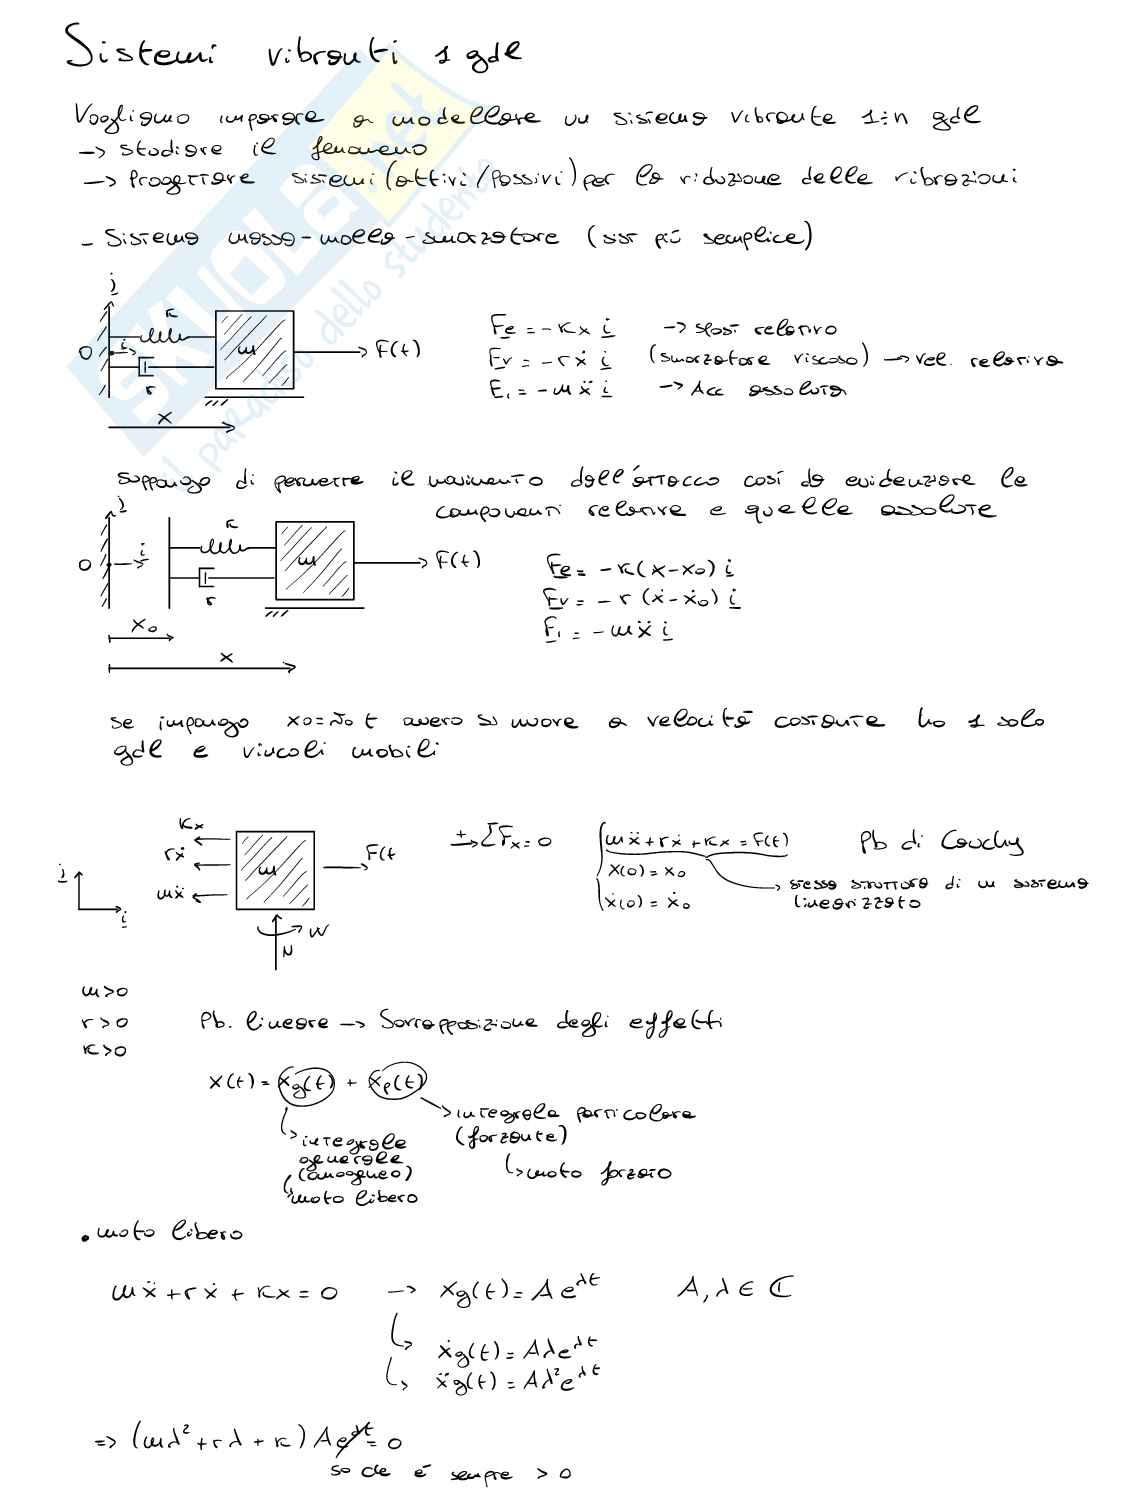 Sistemi vibranti 1 gdl
Vogliamo imparare a modellare un sistema vibrante 1÷n gdl
→ studiare il fenomeno
→ Progettare sistemi (attivi/passivi) per la riduzione delle vibrazioni
- Sistema massa-molla-smorzatore (sist più semplice)
j
k
O i m F(t)
r
x
Fe = -kx i → spost relativo
Fv = -rẋ i (smorzatore viscoso) → vel. relativa
Fi = -mẍ i → Acc assoluta
suppongo di permettre il movimento dell'attacco così da evidenziare le
componenti relative e quelle assolute
j
k
O i m F(t)
r
x₀
x
Fe = -k(x-x₀) i
Fv = -r (ẋ-ẋ₀) i
Fi = -mẍ i
se impongo x₀=v₀t ovvero si muove a velocità costante ho 1 solo
gdl e vincoli mobili
kx
rẋ
mẍ
m
F(t
j
i
W
N
+→ ΣFx=0
mẍ+rẋ+kx=F(t) Pb di Cauchy
x(0)=x₀
ẋ(0)=ẋ₀
→ stessa struttura di un sistema
linearizzato
m>0
r>0 Pb. lineare → Sovrapposizione degli effetti
k>0
x(t) = xg(t) + xp(t)
integrale particolare
(forzante)
moto forzato
integrale
generale
(omogeneo)
moto libero
• moto libero
mẍ+rẋ+kx=0 → xg(t)=Ae^λt A,λ∈ℂ
ẋg(t)=Aλe^λt
ẍg(t)=Aλ²e^λt
=> (mλ²+rλ+k)Ae^λt=0
so che è sempre >0
SKUOLA.net
il paradiso dello studente